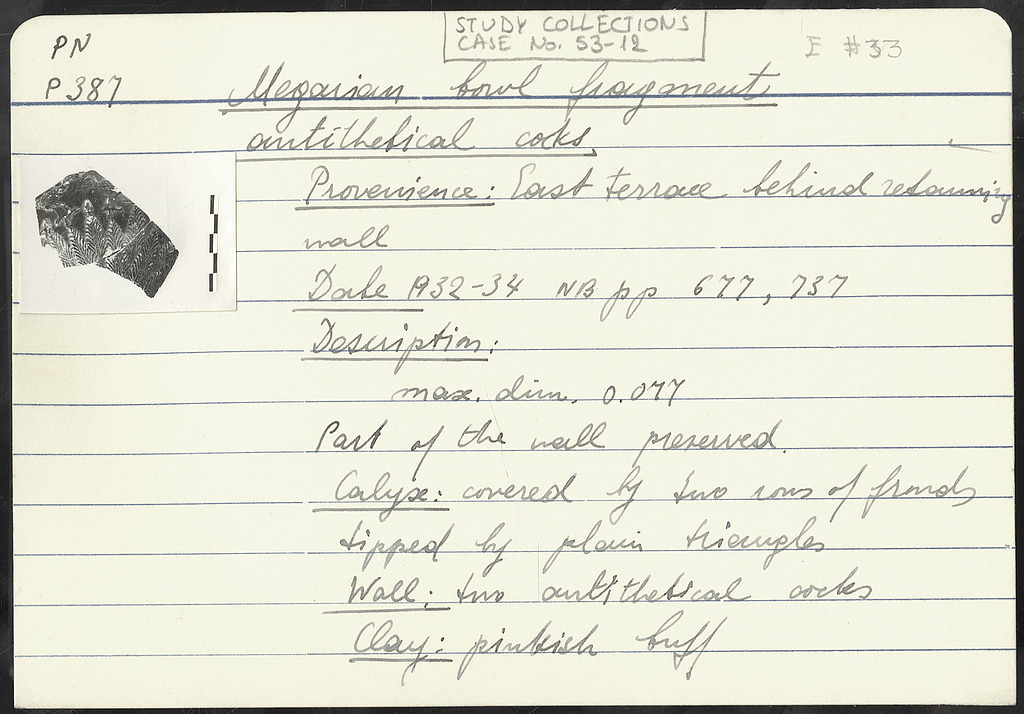 STUDY COLLECTIONS
CASE No. 53-12
PN
I #33
P 387
Megarian bowl fragment
antithetical cocks,
Provenience: East terrace behind retaining
wall
Date 1932-34 NB pp 677, 737
Description:
max. dim. 0.077
Part of the wall preserved.
Calyx: covered by two rows of fronds
tipped by plain triangles
Wall: two antithetical cocks
Clay: pinkish buff